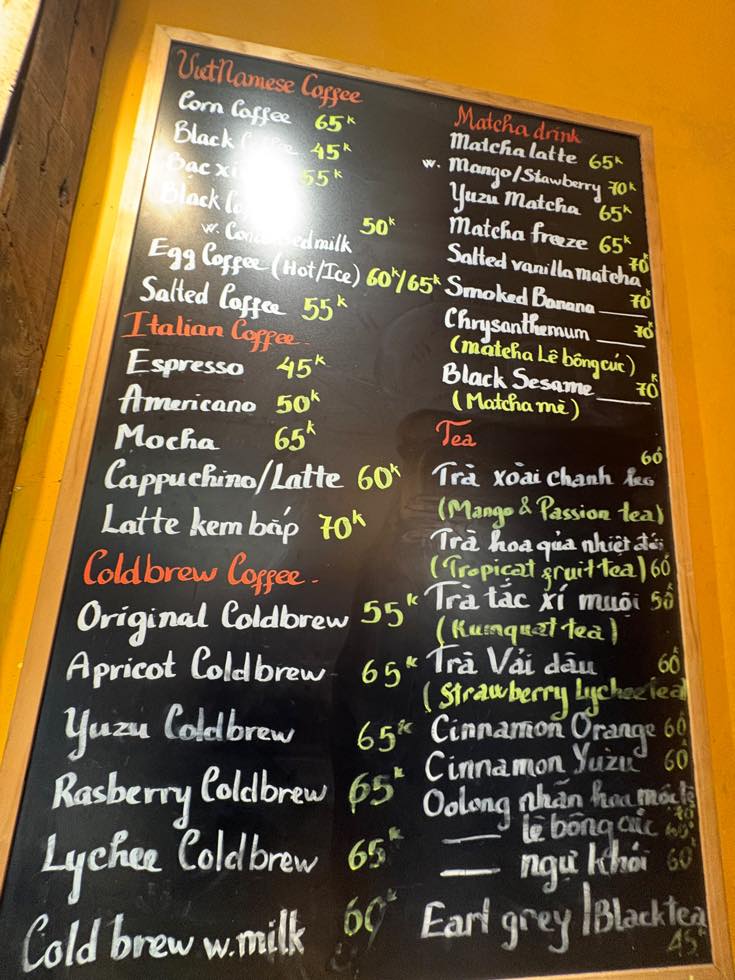 VietNamese Coffee
Corn Coffee 65k
Black 45k
Bạc xỉ 55k
Black
w. Condensed milk 50k
Egg Coffee (Hot/Ice) 60k/65k
Salted Coffee 55k
Italian Coffee.
Espresso 45k
Americano 50k
Mocha 65k
Cappuchino/Latte 60k
Latte kem bắp 70k
Coldbrew Coffee.
Original Coldbrew 55k
Apricot Coldbrew 65k
Yuzu Coldbrew 65k
Rasberry Coldbrew 65k
Lychee Coldbrew 65k
Cold brew w.milk 60k
Matcha drink
Matcha latte 65k
w. Mango/Stawberry 70k
Yuzu Matcha 65k
Matcha freeze 65k
Salted vanilla matcha 70k
Smoked Banana ___ 70k
Chrysanthemum ___ 70k
(matcha Lê bông cúc)
Black Sesame ___ 70k
(Matcha mè)
Tea
Trà xoài chanh leo 60k
(Mango & Passion tea)
Trà hoa quả nhiệt đới
(Tropical fruit tea) 60k
Trà tắc xí muội 50k
(Kumquat tea)
Trà Vải dâu 60k
(Strawberry Lychee tea)
Cinnamon Orange 60k
Cinnamon Yuzu 60k
Oolong nhãn hoa mộc lê
70k
___ lê bông cúc 60k
___ ngự khói 60k
Earl grey/Black tea
45k